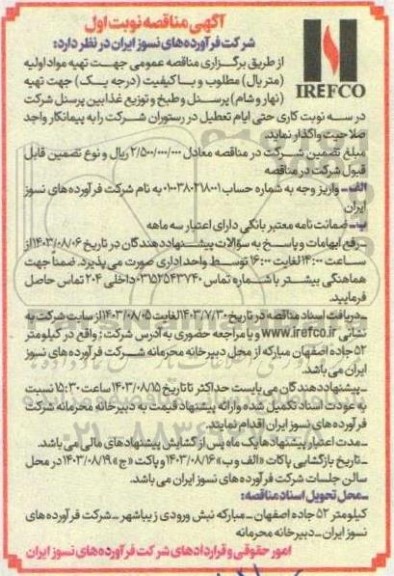 آگهی مناقصه نوبت اول
شرکت فرآورده‌های نسوز ایران در نظر دارد:
IREFCO
از طریق برگزاری مناقصه عمومی جهت تهیه مواد اولیه
(متریال) مطلوب و با کیفیت (درجه یک) جهت تهیه
(نهار و شام) پرسنل و طبخ و توزیع غذا بین پرسنل شرکت
در سه نوبت کاری حتی ایام تعطیل در رستوران شرکت را به پیمانکار واجد
صلاحیت واگذار نماید.
مبلغ تضمین شرکت در مناقصه معادل ۲/۵۰۰/۰۰۰/۰۰۰ ریال و نوع تضمین قابل
قبول شرکت در مناقصه
الف- واریز وجه به شماره حساب ۰۱۰۰۳۸۰۲۱۸۰۰۱ به نام شرکت فرآورده های نسوز
ایران
ب- ضمانت نامه معتبر بانکی دارای اعتبار سه ماهه
- رفع ابهامات و پاسخ به سؤالات پیشنهاددهندگان در تاریخ ۱۴۰۳/۰۸/۰۶ از
ساعت ۱۴:۰۰ لغایت ۱۶:۰۰ توسط واحد اداری صورت می پذیرد. ضمنا جهت
هماهنگی بیشتر با شماره تماس ۰۳۱۵۲۵۴۳۷۴۰ داخلی ۲۰۴ تماس حاصل
فرمایید.
- دریافت اسناد مناقصه در تاریخ ۱۴۰۳/۷/۳۰ لغایت ۱۴۰۳/۰۸/۰۵ از سایت شرکت به
نشانی www.irefco.ir و یا مراجعه حضوری به آدرس شرکت: واقع در کیلومتر
۵۲ جاده اصفهان مبارکه از محل دبیرخانه محرمانه شرکت فرآورده های نسوز
ایران می باشد.
- پیشنهاددهندگان می بایست حداکثر تا تاریخ ۱۴۰۳/۰۸/۱۵ ساعت ۱۵:۳۰ نسبت
به عودت اسناد تکمیل شده و ارائه پیشنهاد قیمت به دبیرخانه محرمانه شرکت
فرآورده های نسوز ایران اقدام نمایند.
- مدت اعتبار پیشنهادها یک ماه پس از گشایش پیشنهادهای مالی می باشد.
- تاریخ بازگشایی پاکات «الف و ب» ۱۴۰۳/۰۸/۱۶ و پاکت «ج» ۱۴۰۳/۰۸/۱۹ در محل
سالن جلسات شرکت فرآورده های نسوز ایران می باشد.
- محل تحویل اسناد مناقصه:
کیلومتر ۵۲ جاده اصفهان - مبارکه نبش ورودی زیباشهر - شرکت فرآورده های
نسوز ایران - دبیرخانه محرمانه
امور حقوقی و قراردادهای شرکت فرآورده‌های نسوز ایران